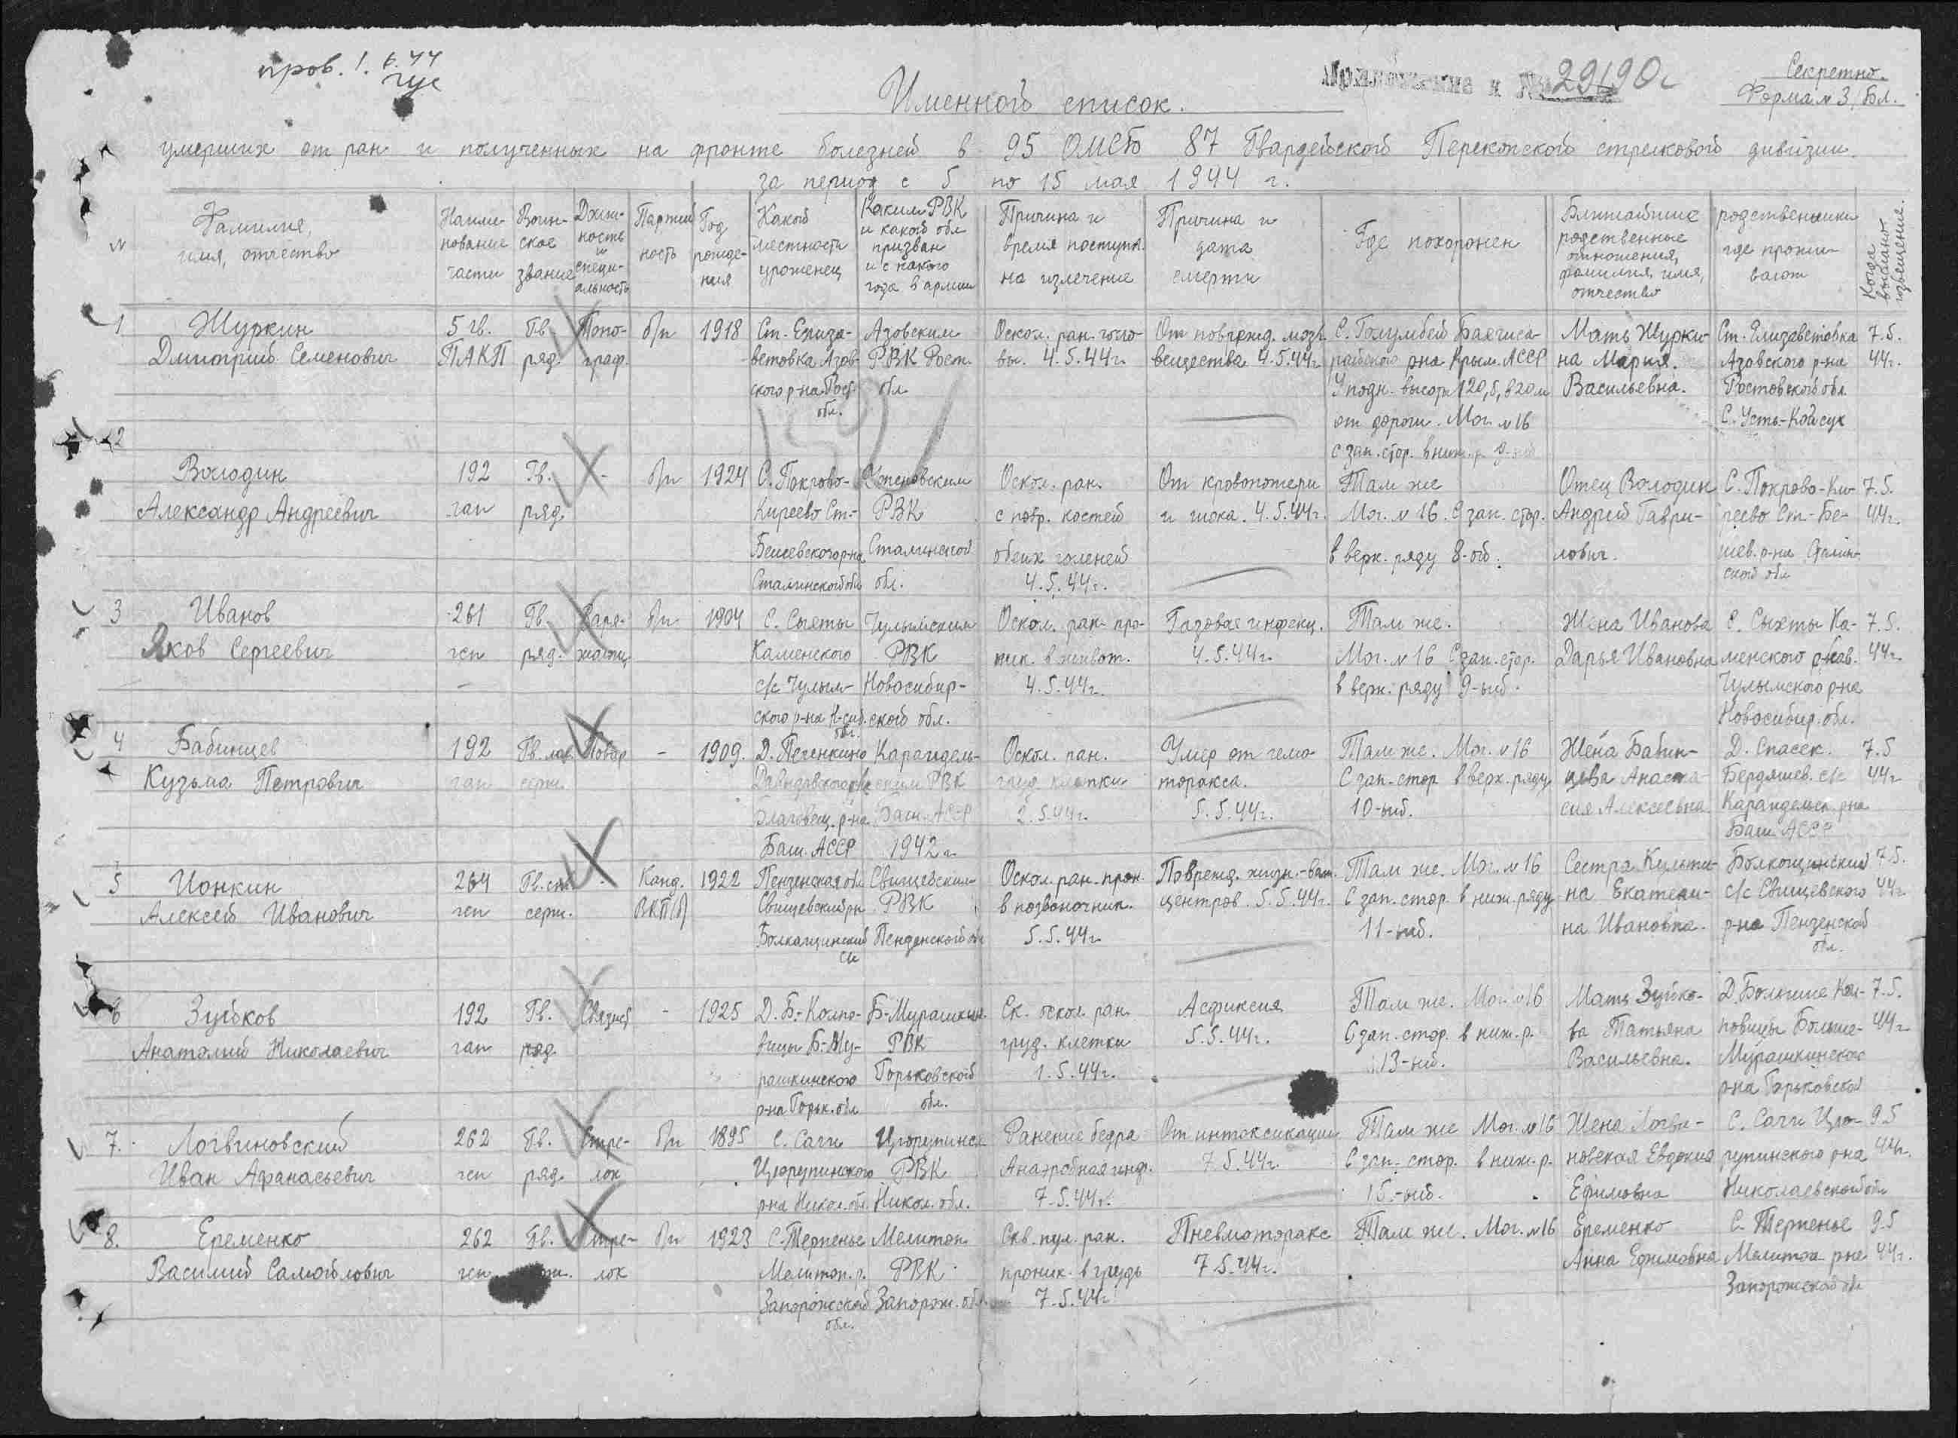 пров. 1. 6. 44
Приложение к № 29190с
Секретно.
Форма № 3/Бл.
Именной список.
умерших от ран и полученных на фронте болезней в 95 ОМСБ 87 Гвардейской Перекопской стрелковой дивизии.
за период с 5 по 15 мая 1944 г.
№
Фамилия,
имя, отчество
Наиме-
нование
части
Воин-
ское
звание
Долж-
ность
и
специ-
альность
Партий
ность
Год
рожде-
ния
Какой
местности
уроженец
Каким РВК
и какой обл
призван
и с какого
года в армии
Причина и
время поступл.
на излечение
Причина и
дата
смерти
Где похоронен
Ближайшие
родственные
отношения,
фамилия, имя,
отчество
родственники
где прожи-
вают
Когда
выслано
извещение.
1
Журкин
Дмитрий Семенович
5 гв.
ПАКП
Гв.
ряд.
Топо-
граф.
б/п
1918
Ст. Елиза-
ветовка Азов-
ского р-на Рост.
обл.
Азовским
РВК Рост.
обл
Оскол. ран. голо-
вы. 4.5.44г.
От поврежд. мозг.
вещества 4.5.44г.
С. Голумбей Бахчиса-
райского р-на Крым. АССР
У подн. высоты 120,5, в 20 м
от дороги. Мог. № 16
с зап. стор.
Мать Журки-
на Мария.
Васильевна.
Ст. Елизаветовка
Азовского р-на
Ростовской обл.
С. Усть-Койсуг
7.5.
44г.
2
Володин
Александр Андреевич
192
гап
Гв.
ряд.
-
б/п
1924
С. Покрово-
Киреево Ст.-
Бешевского р-на
Сталинской обл
РВК
Сталинской
обл.
Оскол. ран.
с повр. костей
обеих голеней
4.5.44г.
От кровопотери
и шока. 4.5.44г.
Там же
Мог. № 16. С зап. стор.
в верх. ряду 8-ой.
Отец Володин
Андрей Гаври-
лович.
С. Покрово-Ки-
реево Ст-Бе-
шев. р-на Сталин-
ской обл
7.5.
44г.
3
Иванов
Яков Сергеевич
261
гсп
Гв.
ряд.
б/п
1904
С. Сыхты
Каменского
с/с Чулым-
ского р-на Н-сиб.
обл.
Чулымским
РВК
Новосибир-
ской обл.
Оскол. ран. про-
ник. в живот.
4.5.44г.
Газовая инфекц.
4.5.44г.
Там же.
Мог. № 16 С зап. стор.
в верх. ряду 9-ый.
Жена Иванова
Дарья Ивановна
С. Сыхты Ка-
менского
Чулымского р-на
Новосибир. обл.
7.5.
44г.
4
Бабинцев
Кузьма Петрович
192
гап
Гв.
серж.
Повар
-
1909.
Д. Печенкино
Благовещ. р-на
Баш. АССР
Караидель-
ским РВК
Баш. АССР
1942г.
Оскол. ран.
груд. клетки
2.5.44г.
Умер от гемо-
торакса.
5.5.44г.
Там же. Мог. № 16
С зап. стор в верх. ряду
10-ый.
Жена Бабин-
цева Анаста-
сия Алексеевна
Д. Спасск.
Бердяшев. с/с
Караидельск. р-на
Баш. АССР
7.5
44г
5
Ионкин
Алексей Иванович
264
гсп
Гв. ст.
серж.
-
Канд.
ВКП(б)
1922
Пензенская обл
Свищевский р-н
Болкащинский
с/с
Свищевским
РВК
Пензенской обл
Оскол. ран. прон.
в позвоночник.
5.5.44г
Поврежд. жизн.-важ.
центров. 5.5.44г.
Там же. Мог. № 16
С зап. стор. в ниж. ряду
11-ый.
Сестра
на Екатери-
на Ивановна.
Болкощинский
с/с Свищевского
р-на Пензенской
обл.
7.5.
44г
6
Зубков
Анатолий Николаевич
192
гап
Гв.
ряд
Связист
-
1925
Д. Б.-Колпо-
вицы Б-Му-
рашкинского
р-на Горьк. обл
Б-Мурашкин.
РВК
Горьковской
обл.
Ск. оскол. ран.
груд. клетки
1.5.44г.
Асфиксия
5.5.44г.
Там же. Мог. № 16
С зап. стор. в ниж. р.
13-ый.
Мать Зубко-
ва Татьяна
Васильевна.
Д. Большие Кол-
повицы Больше-
Мурашкинского
р-на Горьковской
7.5.
44г
7.
Логвиновский
Иван Афанасьевич
262
гсп
Гв.
ряд.
Стре-
лок
б/п
1895
с. Саги
Цюрупинского
р-на Никол. обл.
Цюрупинск.
РВК
Никол. обл.
Ранение бедра
Анаэробная инф.
7.5.44г.
От интоксикации
7.5.44г.
Там же Мог. № 16
С зап. стор. в ниж. р.
15-ый.
Жена Логви-
новская Евдокия
Ефимовна
С. Саги Цю-
рупинского р-на
Николаевской обл
9.5
44г.
8.
Еременко
Василий Самойлович
262
гсп
Гв.
Стре-
лок
б/п
1923
С. Терпенье
Мелитоп. р.
Запорожской
обл.
Мелитоп.
РВК
Запорож. обл.
Скв. пул. ран.
проник. в грудь
7.5.44г
Пневмоторакс
7.5.44г.
Там же. Мог. № 16
Еременко
Анна Ефимовна
С. Терпенье
Мелитоп р-на
Запорожской обл
9.5
44г.